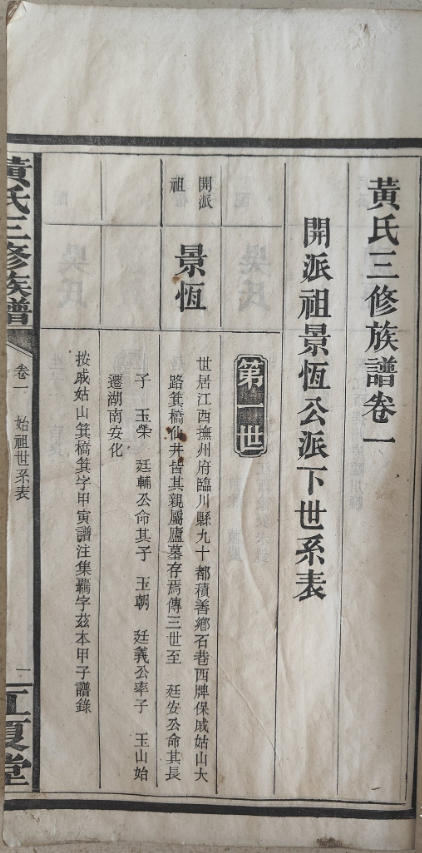 黃氏三修族譜卷一
開派祖景恆公派下世系表
第一世
開派祖
景恆
世居江西撫州府臨川縣九十都積善鄉石巷西牌保戚姑山大
路箕橋仙井皆其親屬廬墓存焉傳三世至 廷安公命其長
子 玉柴 廷輔公命其子 玉朝 廷義公率子 玉山始
遷湖南安化
按戚姑山箕橋箕字甲寅譜注集韉字茲本甲子譜錄
黃氏三修族譜
卷一 始祖世系表
二
江夏堂